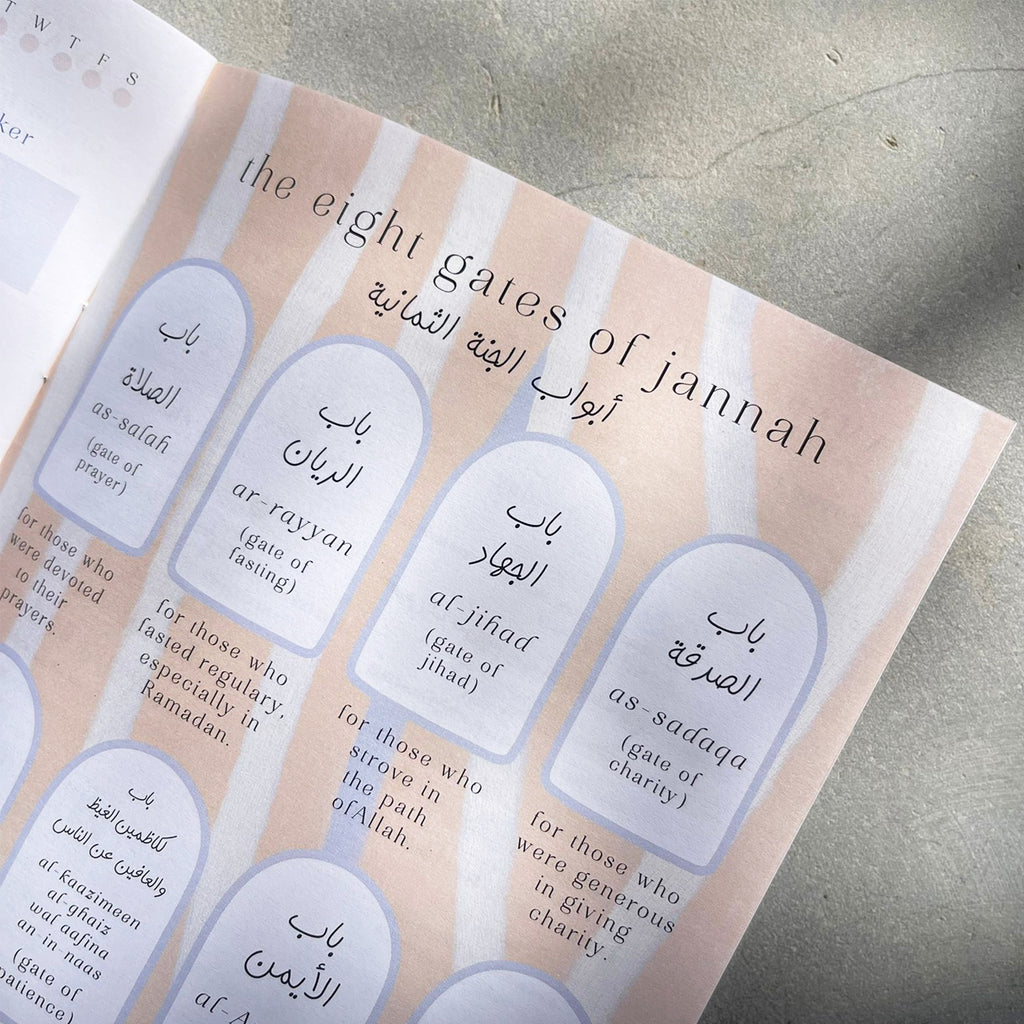 T W T F S
the eight gates of jannah
أبواب الجنة الثمانية
باب
الصلاة
as-salah
(gate of
prayer)
for those who
were devoted
to their
prayers.
باب
الريان
ar-rayyan
(gate of
fasting)
for those who
fasted regulary,
especially in
Ramadan.
باب
الجهاد
al-jihad
(gate of
jihad)
for those who
strove in
the path
ofAllah.
باب
الصدقة
as-sadaqa
(gate of
charity)
for those who
were generous
in giving
charity.
باب
لكاظمين الغيظ
والعافين عن الناس
al-kaazimeen
al-ghaiz
wal aafina
an in naas
(gate of
patience)
باب
الأيمن